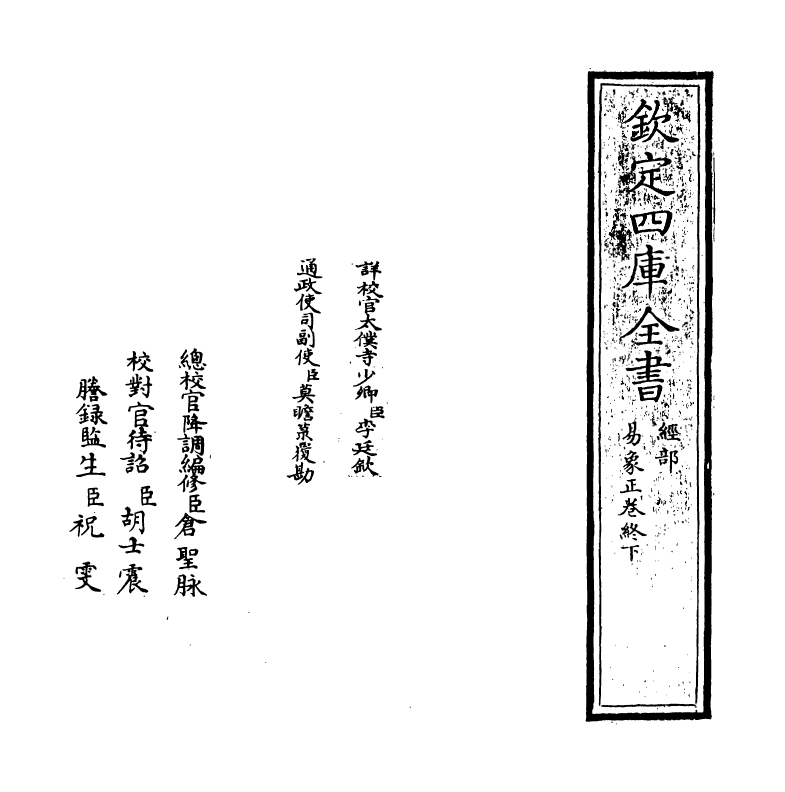 欽定四庫全書
經部
易象正卷終下
詳校官太僕寺少卿臣李廷欽
通政使司副使臣莫瞻菉覆勘
總校官降調編修臣倉聖脉
校對官待詔臣胡士震
謄錄監生臣祝雯